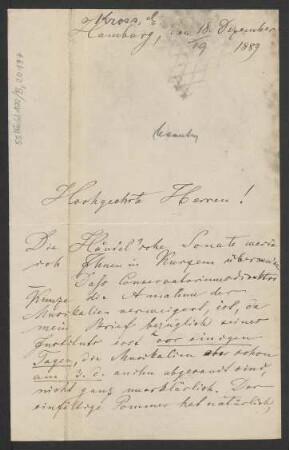 Kross,
Hamburg, den 18. Dezember
19 1889
Hochgeehrte Herren!
Die Händel'sche Sonate werde
ich Ihnen in Kurzem übermitteln
Daß Conservatoriumsdirektor
die Annahme der
Musikalien verweigert, ist, da
mein Brief bezüglich seines
Instituts erst vor einigen
Tagen, die Musikalien aber schon
am 3. d. an ihn abgesandt sind,
nicht ganz unerklärlich. Der
einfältige Pommer hat natürlich,